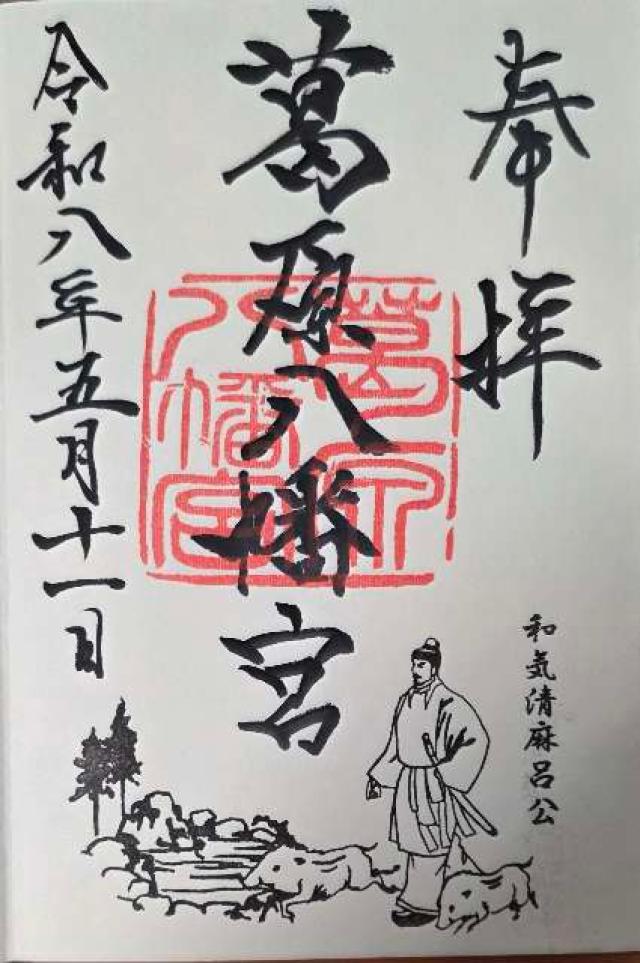 奉拝
葛原八幡宮
令和八年五月十一日
和気清麻呂公